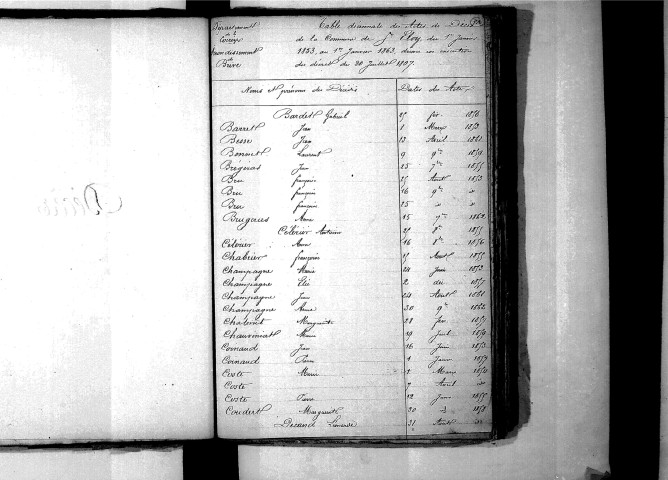 Département
de la
Corrèze
Arrondissement
de
Brive
Table décennale des Actes de Décès
de la Commune de St Eloy du 1er Janvier
1853, au 1er Janvier 1863, dressée en exécution
du décret du 20 Juillet 1807.
Noms et prénoms des Décédés Dates des Actes
Bardet Gabriel 25 fév 1856
Barret Jean 1 Mars 1853
Besse Jean 13 Avril 1861
Bonnet Laurent 9 9bre
Brégeras Jean 25 7bre 1855
Bru françois 25 Août 1853
Bru françois 16 9bre
Bru françois 25
Brugeras Anne 15 7bre 1862
Célérier Antoine 8bre 1855
Célérier Anne 16 8bre 1856
Chabrier françois Août 1855
Champagne Marie 24 Juin
Champagne Elie 2 du 1857
Champagne Jean 24 Août 1861
Champagne Anne 30 9bre 1862
Chatenet Marguerite 28 fév
Chauviniat Marie 19 Juil
Cornaud Jean 16 Juin 1853
Cornaud Pierre 1 Janv 1859
Coste Marie Mars
Coste 7 Avril
Coste Pierre 12 Juin 1855
Coudert Marguerite 30 1858
Léonarde 31 Août
Décès